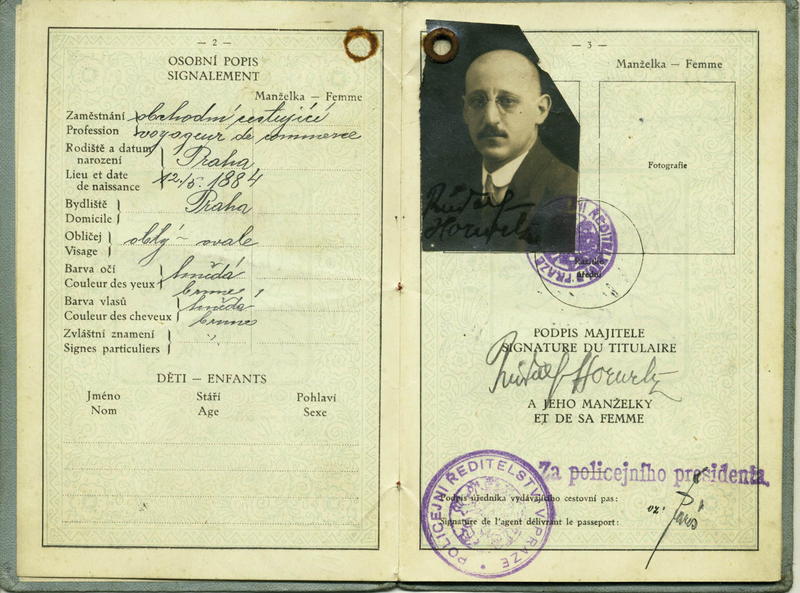 — 2 —
OSOBNÍ POPIS
SIGNALEMENT
Manželka — Femme
Zaměstnání obchodní cestující
Profession voyageur de commerce
Rodiště a datum
narození Praha
Lieu et date
de naissance 12./5. 1884
Bydliště Praha
Domicile
Obličej oblý – ovale
Visage
Barva očí hnědá
Couleur des yeux brunés
Barva vlasů hnědá
Couleur des cheveux brunés
Zvláštní znamení
Signes particuliers
DĚTI — ENFANTS
Jméno Stáří Pohlaví
Nom Age Sexe
— 3 —
Manželka — Femme
Fotografie
Rudolf
PODPIS MAJITELE
SIGNATURE DU TITULAIRE
Rudolf
A JEHO MANŽELKY
ET DE SA FEMME
Za policejního presidenta.
Podpis úředníka vydávajícího cestovní pas:
Signature de l'agent délivrant le passeport:
POLICEJNÍ ŘEDITELSTVÍ V PRAZE